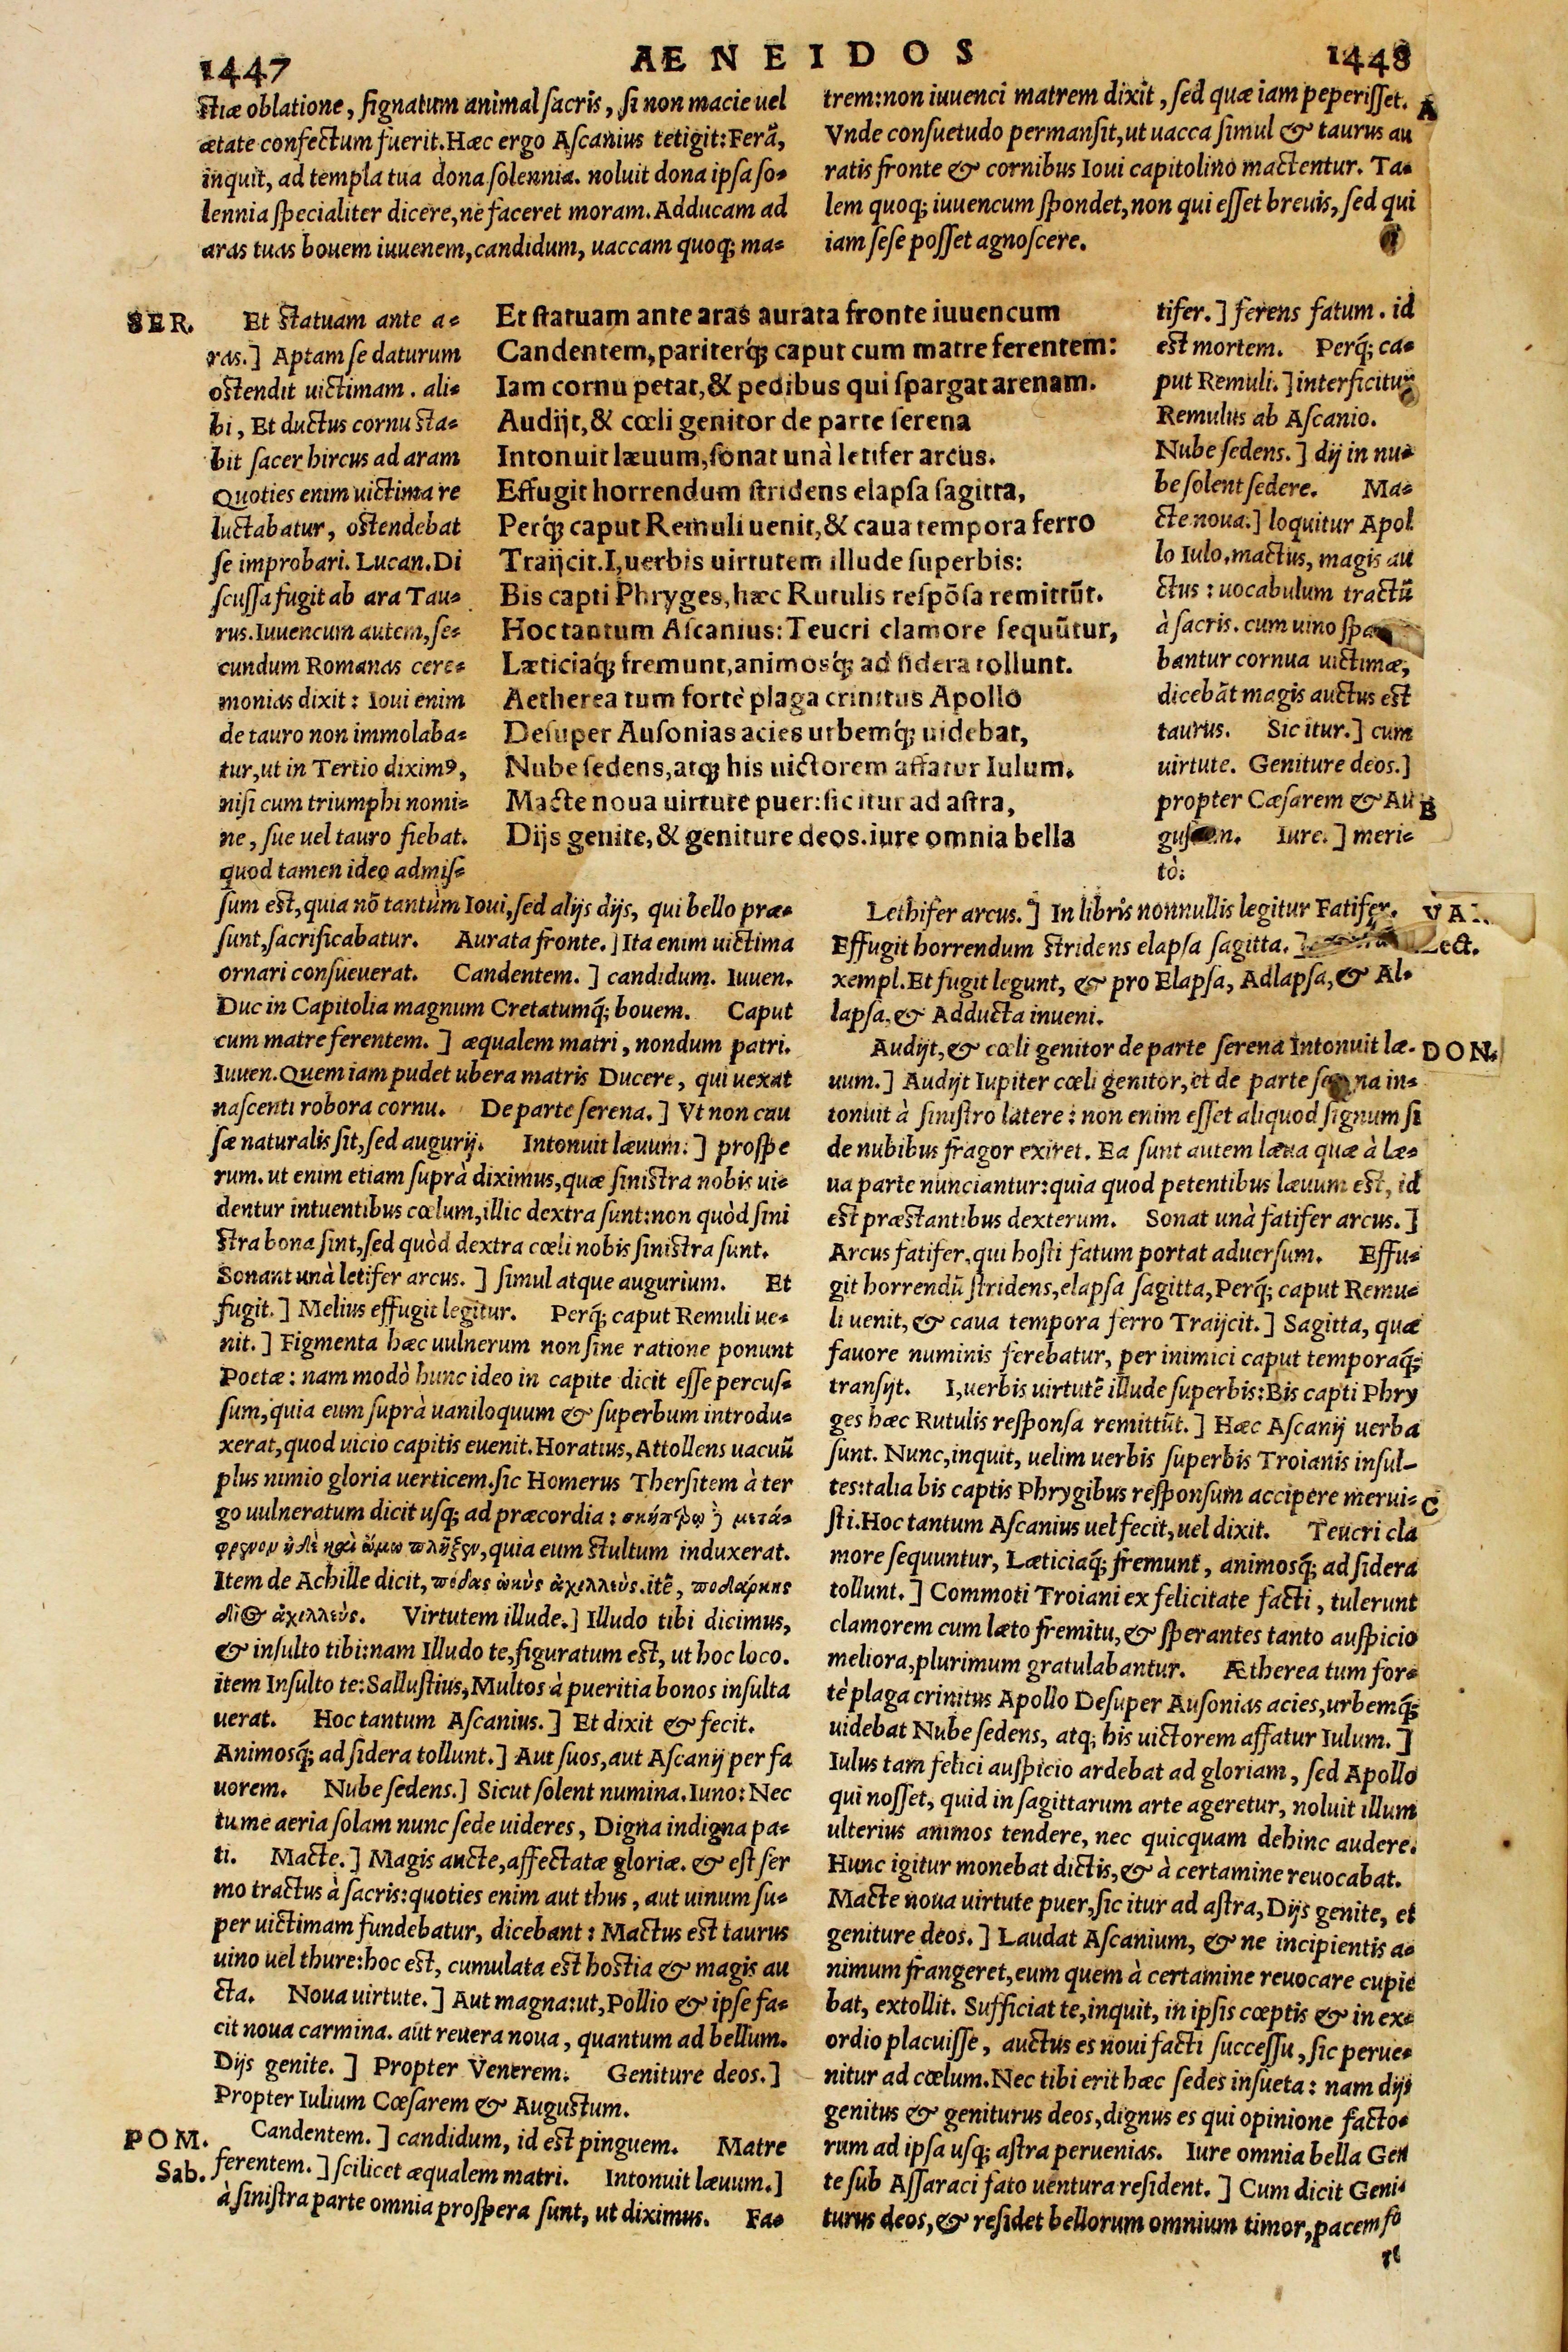 1447
AENEIDOS
1448
stiæ oblatione, signatum animal sacris, si non macie uel
ætate confectum fuerit. Hæc ergo Ascanius tetigit: Ferā,
inquit, ad templa tua dona solennia. noluit dona ipsa so-
lennia specialiter dicere, ne faceret moram. Adducam ad
aras tuas bouem iuuenem, candidum, uaccam quoq; ma-
trem: non iuuenci matrem dixit, sed quæ iam peperisset.
A
Vnde consuetudo permansit, ut uacca simul & taurus au
ratis fronte & cornibus Ioui capitolino mactentur. Ta-
lem quoq; iuuencum spondet, non qui esset breuis, sed qui
iam sese posset agnoscere.
SER.
Et statuam ante a-
ras.] Aptam se daturum
ostendit uictimam. ali-
bi, Et ductus cornu sta-
bit sacer hircus ad aram
Quoties enim uictima re
luctabatur, ostendebat
se improbari. Lucan. Di
scussa fugit ab ara Tau-
rus. Iuuencum autem, se-
cundum Romanas cere-
monias dixit: Ioui enim
de tauro non immolaba-
tur, ut in Tertio diximꝰ,
nisi cum triumphi nomi-
ne, sue uel tauro fiebat.
quod tamen ideo admis-
Et statuam ante aras aurata fronte iuuencum
Candentem, pariterq́; caput cum matre ferentem:
Iam cornu petat, & pedibus qui spargat arenam.
Audijt, & cœli genitor de parte serena
Intonuit læuum, sonat unà letifer arcus.
Effugit horrendum stridens elapsa sagitta,
Perq́; caput Remuli uenit, & caua tempora ferro
Traijcit. I, uerbis uirtutem illude superbis:
Bis capti Phryges, hæc Rutulis respōsa remittūt.
Hoc tantum Ascanius: Teucri clamore sequūtur,
Læticiaq́; fremunt, animosq́; ad sidera tollunt.
Aetherea tum fortè plaga crinitus Apollo
Desuper Ausonias acies urbemq́; uidebat,
Nube sedens, atq; his uictorem affatur Iulum.
Macte noua uirtute puer: sic itur ad astra,
Dijs genite, & geniture deos. iure omnia bella
tifer.] ferens fatum. id
est mortem. Perq́; ca-
put Remuli.] interficitur
Remulus ab Ascanio.
Nube sedens.] dij in nu-
be solent sedere. Ma-
cte noua.] loquitur Apol
lo Iulo. mactus, magis au
ctus: uocabulum tractū
à sacris. cum uino
bantur cornua uictimæ,
dicebāt magis auctus est
taurus. Sic itur.] cum
uirtute. Geniture deos.]
propter Cæsarem & Au
B
Iure.] meri-
tò.
sum est, quia nō tantùm Ioui, sed alijs dijs, qui bello præ-
sunt, sacrificabatur. Aurata fronte.] Ita enim uictima
ornari consueuerat. Candentem.] candidum. Iuuen.
Duc in Capitolia magnum Cretatumq́; bouem. Caput
cum matre ferentem.] æqualem matri, nondum patri.
Iuuen. Quem iam pudet ubera matris Ducere, qui uexat
nascenti robora cornu. De parte serena.] Vt non cau
sæ naturalis sit, sed augurij. Intonuit læuum:] prospe
rum. ut enim etiam suprà diximus, quæ sinistra nobis ui-
dentur intuentibus cœlum, illic dextra sunt: non quòd sini
stra bona sint, sed quòd dextra cœli nobis sinistra sunt.
Sonant unà letifer arcus.] simul atque augurium. Et
fugit.] Melius effugit legitur. Perq́; caput Remuli ue-
nit.] Figmenta hæc uulnerum non sine ratione ponunt
Poetæ: nam modò hunc ideo in capite dicit esse percus-
sum, quia eum suprà uaniloquum & superbum introdu-
xerat, quod uicio capitis euenit. Horatius, Attollens uacuū
plus nimio gloria uerticem. sic Homerus Thersitem à ter
go uulneratum dicit usq; ad præcordia: σκήπτρῳ δ μετά-
φρενον ἠδὲ καὶ ὤμω πλῆξεν, quia eum stultum induxerat.
Item de Achille dicit, ποδας ὠκὺς ἀχιλλεὺς. itē, ποδάρκης
δῖος ἀχιλλεὺς. Virtutem illude.] Illudo tibi dicimus,
& insulto tibi: nam Illudo te, figuratum est, ut hoc loco.
item Insulto te: Sallustius, Multos à pueritia bonos insulta
uerat. Hoc tantum Ascanius.] Et dixit & fecit.
Animosq́; ad sidera tollunt.] Aut suos, aut Ascanij per fa
uorem. Nube sedens.] Sicut solent numina. Iuno: Nec
tu me aeria solam nunc sede uideres, Digna indigna pa-
ti. Macte.] Magis aucte, affectatæ gloriæ. & est ser
mo tractus à sacris: quoties enim aut thus, aut uinum su-
per uictimam fundebatur, dicebant: Mactus est taurus
uino uel thure: hoc est, cumulata est hostia & magis au
cta. Noua uirtute.] Aut magna: ut, Pollio & ipse fa-
cit noua carmina. aut reuera noua, quantum ad bellum.
Dijs genite.] Propter Venerem. Geniture deos.]
Propter Iulium Cœsarem & Augustum.
POM.
Sab.
Candentem.] candidum, id est pinguem. Matre
ferentem.] scilicet æqualem matri. Intonuit læuum.]
à sinistra parte omnia prospera sunt, ut diximus. Fa-
Lethifer arcus.] In libris nonnullis legitur Fatifer.
Lect.
Effugit horrendum stridens elapsa sagitta.]
xempl. Et fugit legunt, & pro Elapsa, Adlapsa, & Al-
lapsa, & Adducta inueni.
DON.
Audijt, & cœli genitor de parte serena Intonuit læ-
uum.] Audijt Iupiter cœli genitor, et de parte serena in-
tonuit à sinistro latere: non enim esset aliquod signum si
de nubibus fragor exiret. Ea sunt autem læua quæ à læ-
ua parte nunciantur: quia quod petentibus læuum est, id
est præstantibus dexterum. Sonat unà fatifer arcus.]
Arcus fatifer, qui hosti fatum portat aduersum. Effu-
git horrendū stridens, elapsa sagitta, Perq́; caput Remu-
li uenit, & caua tempora ferro Traijcit.] Sagitta, quæ
fauore numinis ferebatur, per inimici caput temporaq́;
transijt. I, uerbis uirtutē illude superbis: Bis capti Phry
ges hæc Rutulis responsa remittūt.] Hæc Ascanij uerba
sunt. Nunc, inquit, uelim uerbis superbis Troianis insul-
tes: talia bis captis Phrygibus responsum accipere merui-
C
sti. Hoc tantum Ascanius uel fecit, uel dixit. Teucri cla
more sequuntur, Læticiaq́; fremunt, animosq́; ad sidera
tollunt.] Commoti Troiani ex felicitate facti, tulerunt
clamorem cum læto fremitu, & sperantes tanto auspicio
meliora, plurimum gratulabantur. Ætherea tum for-
tè plaga crinitus Apollo Desuper Ausonias acies, urbemq́;
uidebat Nube sedens, atq; his uictorem affatur Iulum.]
Iulus tam felici auspicio ardebat ad gloriam, sed Apollo
qui nosset, quid in sagittarum arte ageretur, noluit illum
ulterius animos tendere, nec quicquam dehinc audere.
Hunc igitur monebat dictis, & à certamine reuocabat.
Macte noua uirtute puer, sic itur ad astra, Dijs genite, et
geniture deos.] Laudat Ascanium, & ne incipientis a-
nimum frangeret, eum quem à certamine reuocare cupie
bat, extollit. Sufficiat te, inquit, in ipsis cœptis & in ex-
ordio placuisse, auctus es noui facti successu, sic perue-
nitur ad cœlum. Nec tibi erit hæc sedes insueta: nam dijs
genitus & geniturus deos, dignus es qui opinione facto-
rum ad ipsa usq; astra peruenias. Iure omnia bella Gen
te sub Assaraci fato uentura resident.] Cum dicit Geni-
turus deos, & residet bellorum omnium timor, pacem fo